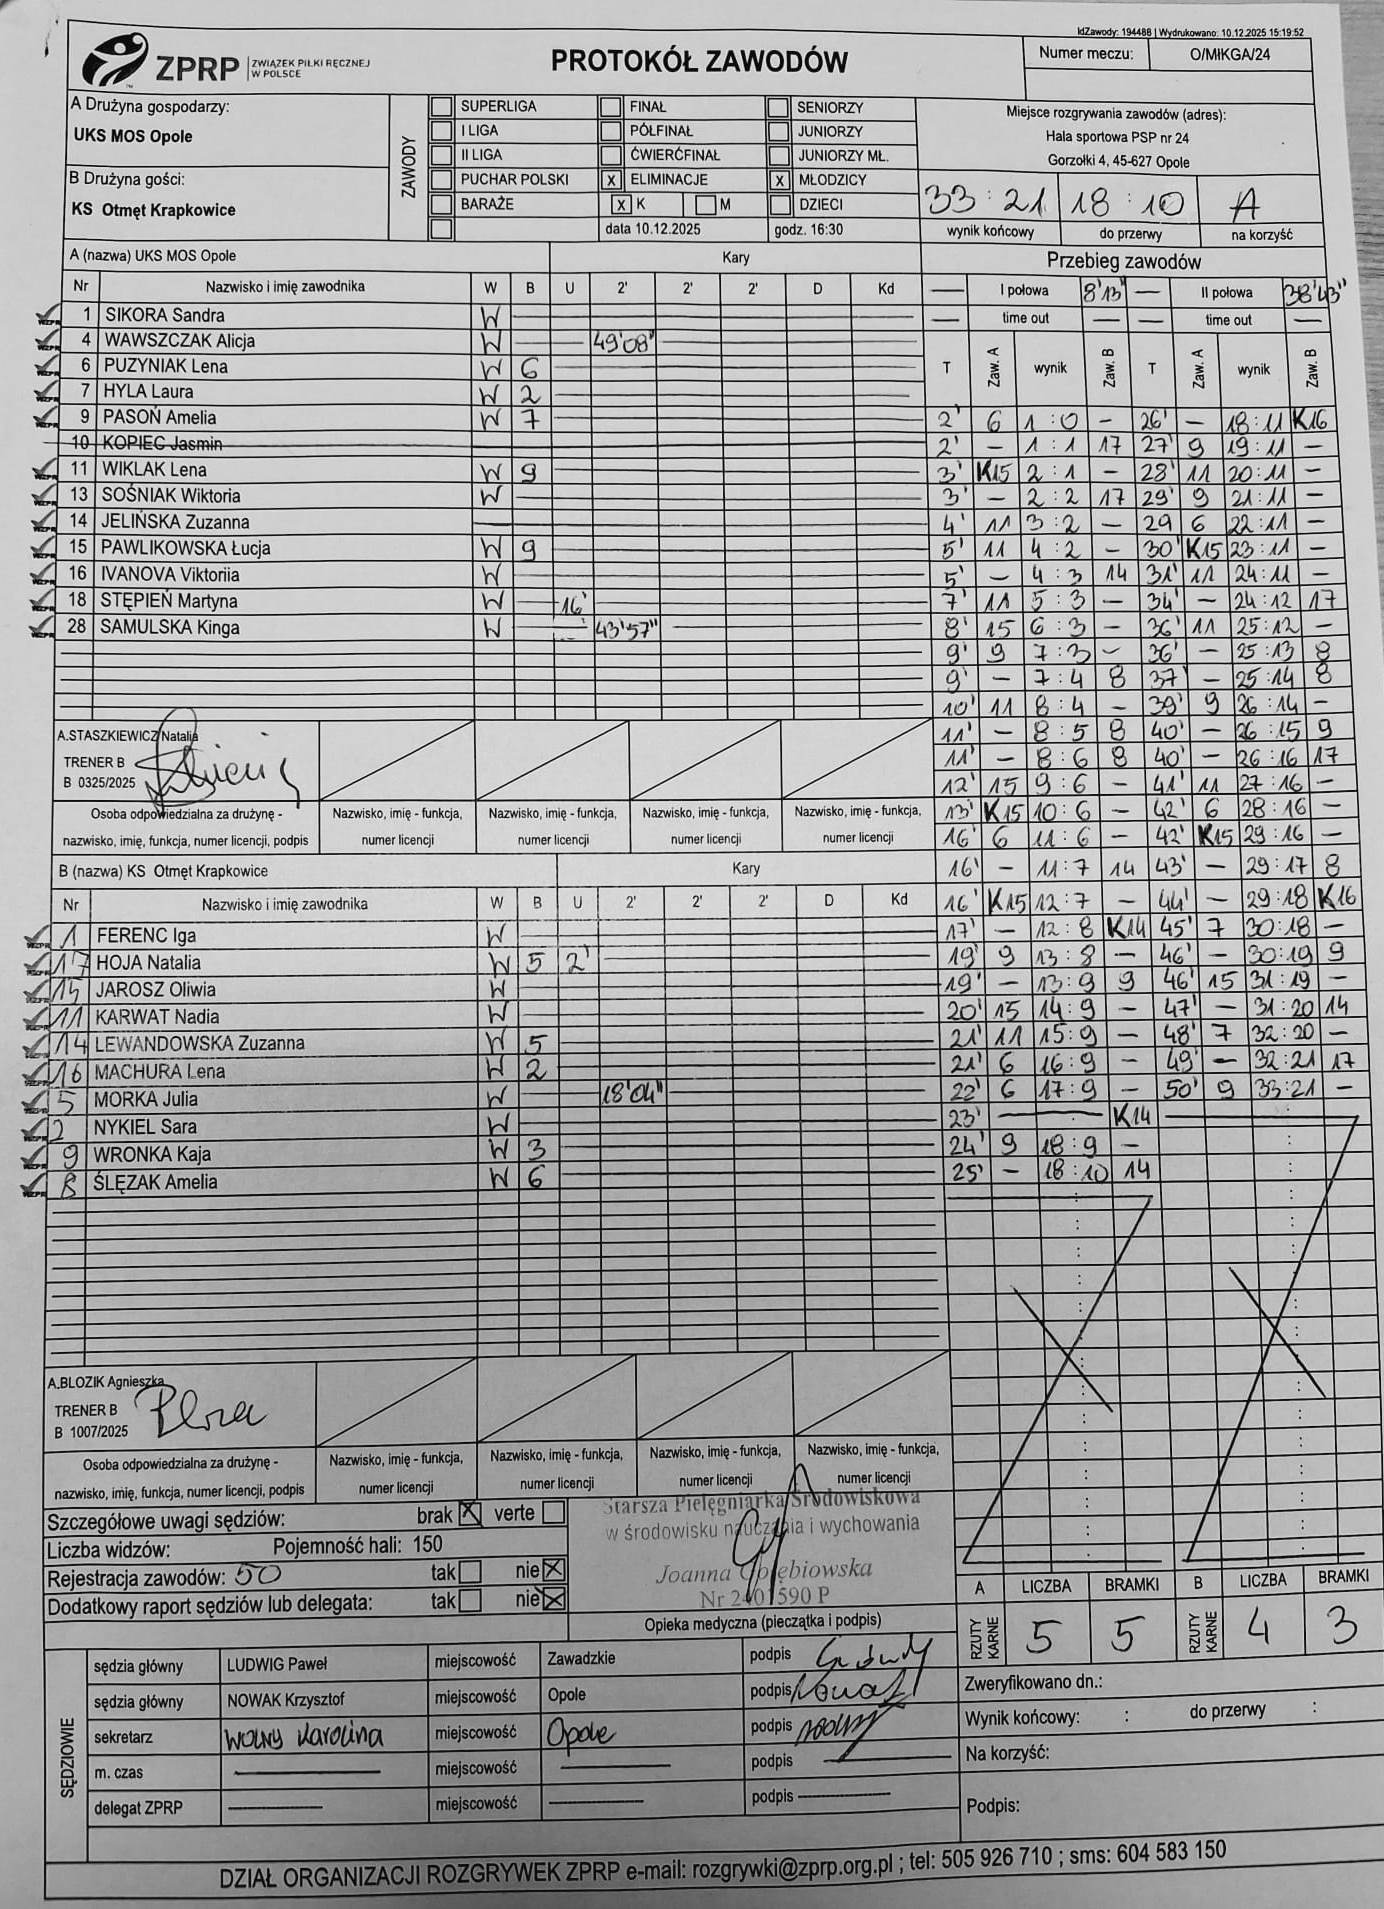 IdZawody: 194488 | Wydrukowano: 10.12.2025 15:19:52
ZPRP ZWIĄZEK PIŁKI RĘCZNEJ W POLSCE
PROTOKÓŁ ZAWODÓW
Numer meczu: O/MłKGA/24
A Drużyna gospodarzy:
UKS MOS Opole
B Drużyna gości:
KS Otmęt Krapkowice
ZAWODY
SUPERLIGA FINAŁ SENIORZY
I LIGA PÓŁFINAŁ JUNIORZY
II LIGA ĆWIERĆFINAŁ JUNIORZY MŁ.
PUCHAR POLSKI X ELIMINACJE X MŁODZICY
BARAŻE X K M DZIECI
data 10.12.2025 godz. 16:30
Miejsce rozgrywania zawodów (adres):
Hala sportowa PSP nr 24
Gorzołki 4, 45-627 Opole
33 : 21 18 : 10 A
wynik końcowy do przerwy na korzyść
A (nazwa) UKS MOS Opole Kary
Nr Nazwisko i imię zawodnika W B U 2' 2' 2' D Kd
1 SIKORA Sandra W
4 WAWSZCZAK Alicja W 49'08"
6 PUZYNIAK Lena W 6
7 HYLA Laura W 2
9 PASOŃ Amelia W 7
10 KOPIEC Jasmin
11 WIKLAK Lena W 9
13 SOŚNIAK Wiktoria W
14 JELIŃSKA Zuzanna
15 PAWLIKOWSKA Łucja W 9
16 IVANOVA Viktoriia W
18 STĘPIEŃ Martyna W 16'
28 SAMULSKA Kinga W 43'57"
A.STASZKIEWICZ Natalia
TRENER B
B 0325/2025
Osoba odpowiedzialna za drużynę - nazwisko, imię, funkcja, numer licencji, podpis
Nazwisko, imię - funkcja, numer licencji
Nazwisko, imię - funkcja, numer licencji
Nazwisko, imię - funkcja, numer licencji
Nazwisko, imię - funkcja, numer licencji
B (nazwa) KS Otmęt Krapkowice Kary
Nr Nazwisko i imię zawodnika W B U 2' 2' 2' D Kd
1 FERENC Iga W
17 HOJA Natalia W 5 2'
15 JAROSZ Oliwia W
11 KARWAT Nadia W
14 LEWANDOWSKA Zuzanna W 5
16 MACHURA Lena W 2
5 MORKA Julia W 18'04"
2 NYKIEL Sara W
9 WRONKA Kaja W 3
8 ŚLĘZAK Amelia W 6
A.BLOZIK Agnieszka
TRENER B
B 1007/2025
Osoba odpowiedzialna za drużynę - nazwisko, imię, funkcja, numer licencji, podpis
Nazwisko, imię - funkcja, numer licencji
Nazwisko, imię - funkcja, numer licencji
Nazwisko, imię - funkcja, numer licencji
Nazwisko, imię - funkcja, numer licencji
Przebieg zawodów
— I połowa 8'13" — II połowa 38'43"
— time out — — time out —
T Zaw. A wynik Zaw. B T Zaw. A wynik Zaw. B
2' 6 1 : 0 - 26' - 18:11 K16
2' - 1 : 1 17 27' 9 19:11 -
3' K15 2 : 1 - 28' 11 20:11 -
3' - 2 : 2 17 29' 9 21:11 -
4' 11 3 : 2 - 29 6 22:11 -
5' 11 4 : 2 - 30' K15 23:11 -
5' - 4 : 3 14 31' 11 24:11 -
7' 11 5 : 3 - 34' - 24:12 17
8' 15 6 : 3 - 36' 11 25:12 -
9' 9 7 : 3 - 36' - 25:13 8
9' - 7 : 4 8 37' - 25:14 8
10' 11 8 : 4 - 39' 9 26:14 -
11' - 8 : 5 8 40' - 26:15 9
11' - 8 : 6 8 40' - 26:16 17
12' 15 9 : 6 - 41' 11 27:16 -
13' K15 10 : 6 - 42' 6 28:16 -
16' 6 11 : 6 - 42' K15 29:16 -
16' - 11 : 7 14 43' - 29:17 8
16' K15 12 : 7 - 44' - 29:18 K16
17' - 12 : 8 K14 45' 7 30:18 -
19' 9 13 : 8 - 46' - 30:19 9
19' - 13 : 9 9 46' 15 31:19 -
20' 15 14 : 9 - 47' - 31:20 14
21' 11 15 : 9 - 48' 7 32:20 -
21' 6 16 : 9 - 49' - 32:21 17
22' 6 17 : 9 - 50' 9 33:21 -
23' — K14
24' 9 18 : 9 -
25' - 18 : 10 14
Szczegółowe uwagi sędziów: brak X verte
Liczba widzów: Pojemność hali: 150
Rejestracja zawodów: 50 tak nie X
Dodatkowy raport sędziów lub delegata: tak nie X
Starsza Pielęgniarka Środowiskowa
w środowisku nauczania i wychowania
Joanna
Opieka medyczna (pieczątka i podpis)
A LICZBA BRAMKI B LICZBA BRAMKI
RZUTY KARNE 5 5 RZUTY KARNE 4 3
SĘDZIOWIE
sędzia główny LUDWIG Paweł miejscowość Zawadzkie podpis
sędzia główny NOWAK Krzysztof miejscowość Opole podpis Nowak
sekretarz Wolny Karolina miejscowość Opole podpis
m. czas — miejscowość — podpis —
delegat ZPRP — miejscowość — podpis —
Zweryfikowano dn.:
Wynik końcowy: : do przerwy :
Na korzyść:
Podpis:
DZIAŁ ORGANIZACJI ROZGRYWEK ZPRP e-mail: rozgrywki@zprp.org.pl ; tel: 505 926 710 ; sms: 604 583 150